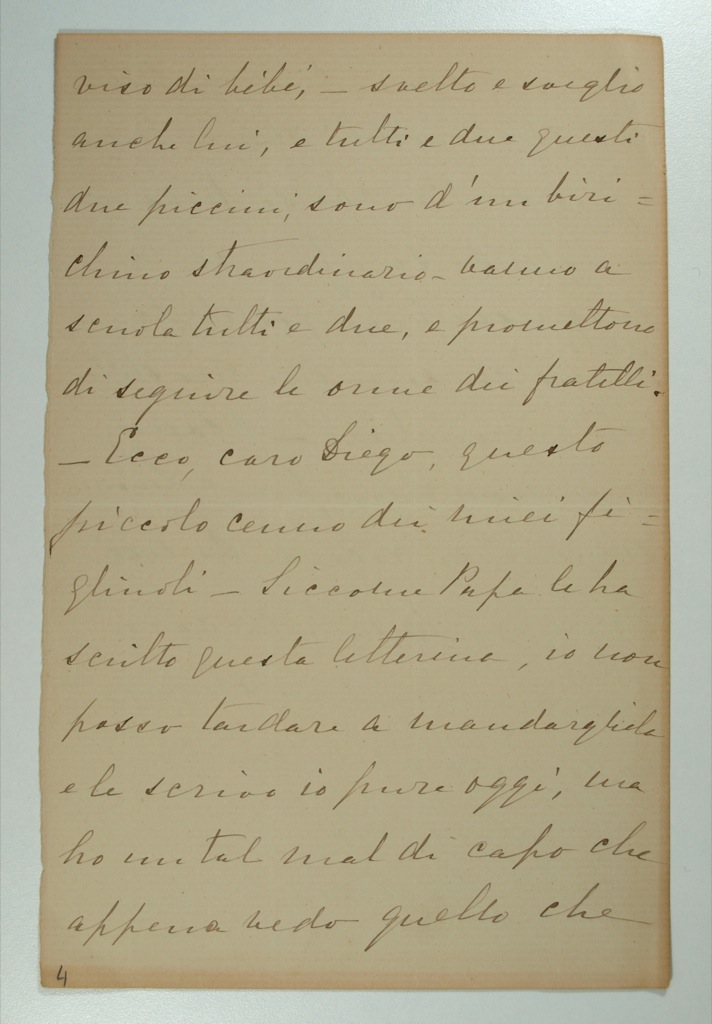 viso di bébé, – svelto e sveglio
anche lui, e tutti e due questi
due piccini, sono d'un biri=
chino straordinario – vanno a
scuola tutti e due, e promettono
di seguire le orme dei fratelli.
– Ecco, caro Diego, questo
piccolo cenno dei miei fi=
gliuoli – Siccome Papa le ha
scritto questa letterina, io non
posso tardare a mandargliela
e le scrivo io pure oggi, ma
ho un tal mal di capo che
appena vedo quello che
4